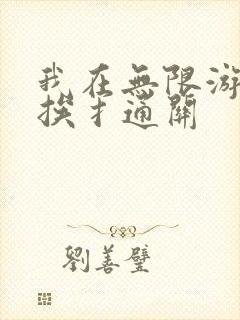 我在無限游
挨扌通關
劉善璧